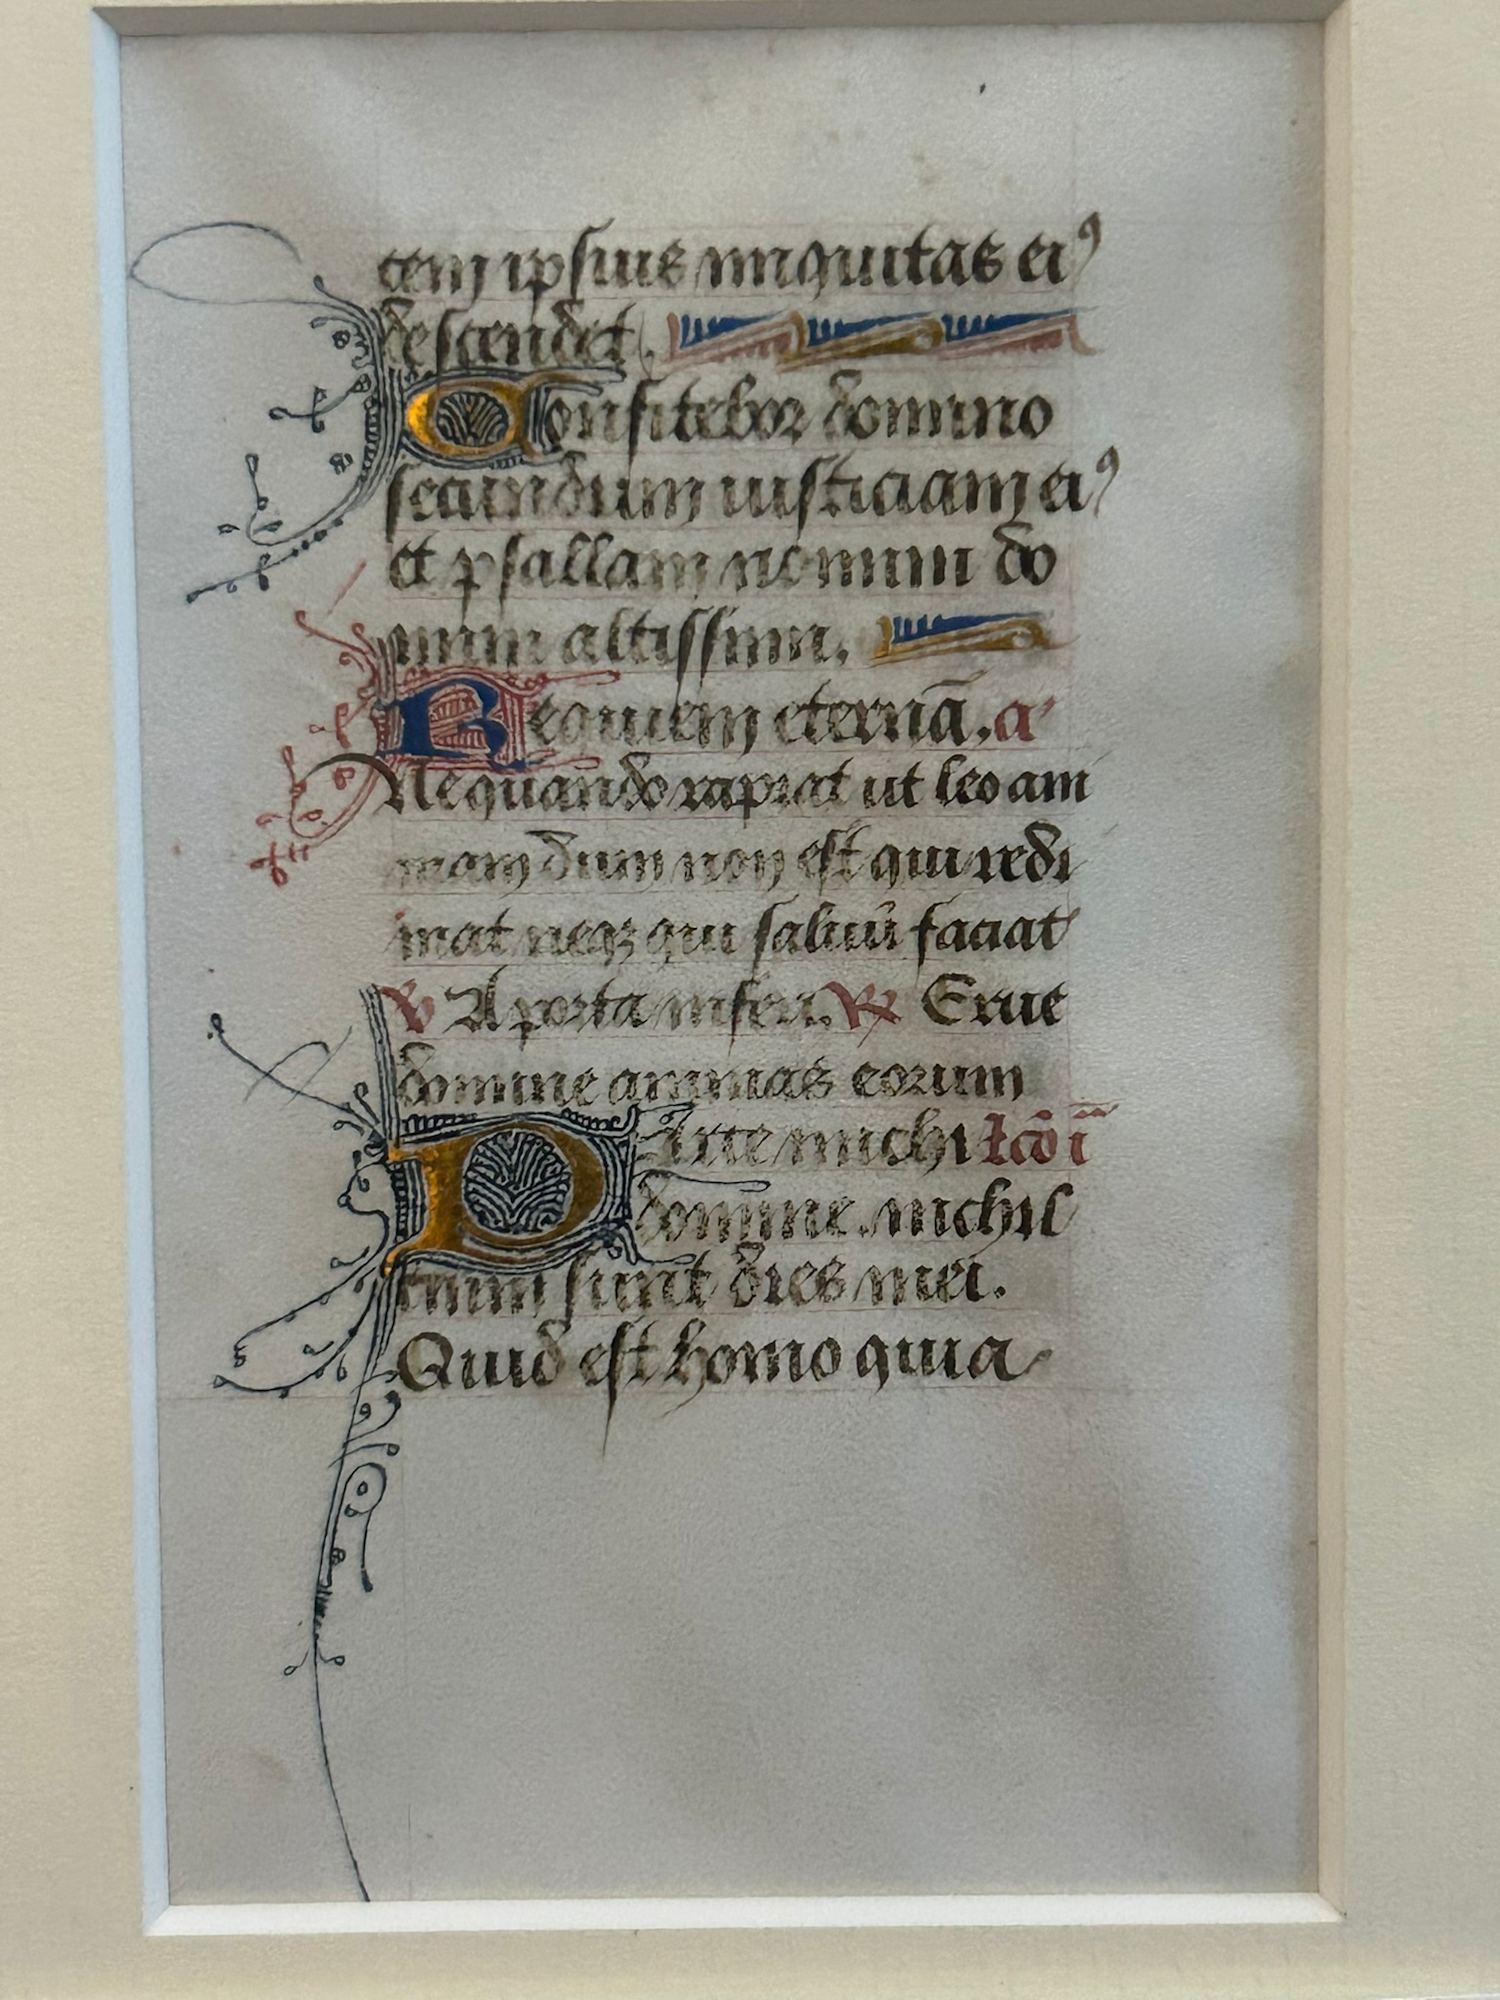 tem ipsius iniquitas eiꝰ
descendet.
Confitebor domino
secundum iusticiam eiꝰ
et psallam nomini do
mini altissimi.
Requiem eternā. a
Nequando rapiat ut leo ani
mam dum non est qui redi
mat neqꝫ qui saluū faciat
℣ A porta inferi. ℟ Erue
domine animas eorum
PArce michi lcō i
domine. nichil
enim sunt dies mei.
Quid est homo quia